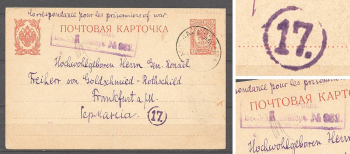 Correspondance pour les prisonniers of war.
ПОЧТОВАЯ КАРТОЧКА
№ 963.
Hochwohlgeboren Herrn Gen. Konsul
Freiherr von Goldschmied-Rothschild
Frankfurt a/M.
Германія
17.
17.
pour les prisonniers
ПОЧТОВАЯ КАРТ
№ 963.
Hochwohlgeboren Herrn